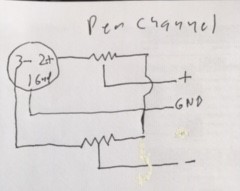 Per Channel
3- 2+
1 Gnd
+
GND
-